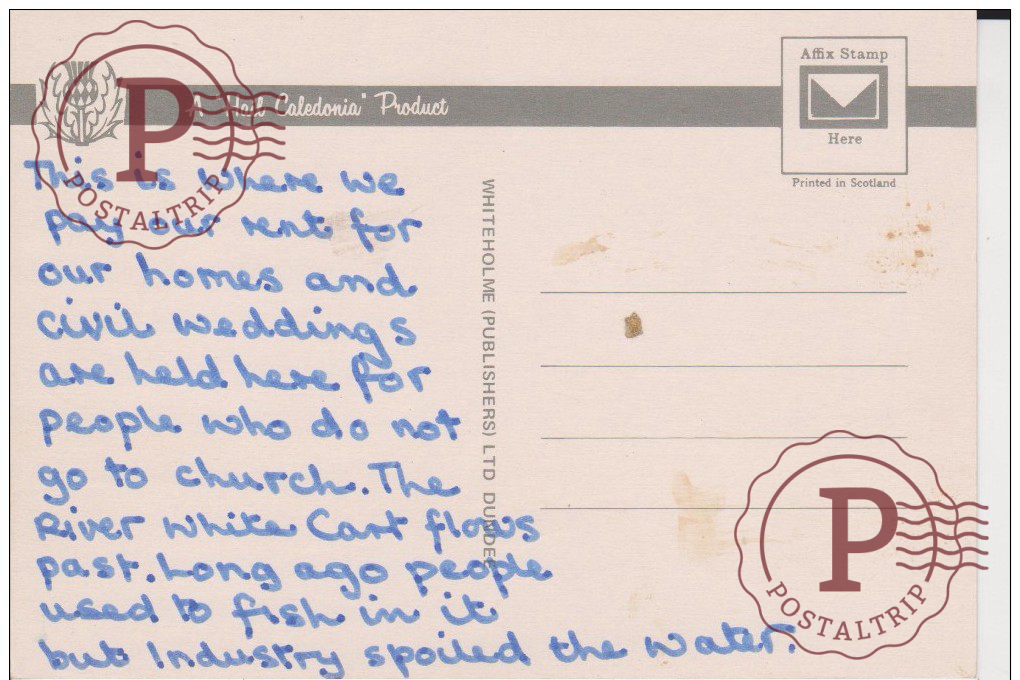 A "Hail Caledonia" Product
Affix Stamp
Here
Printed in Scotland
This is where we
pay our rent for
our homes and
civil weddings
are held here for
people who do not
go to church. The
River White Cart flows
past. Long ago people
used to fish in it
but Industry spoiled the water.
WHITEHOLME (PUBLISHERS) LTD DUNDEE
P
POSTALTRIP
P
POSTALTRIP